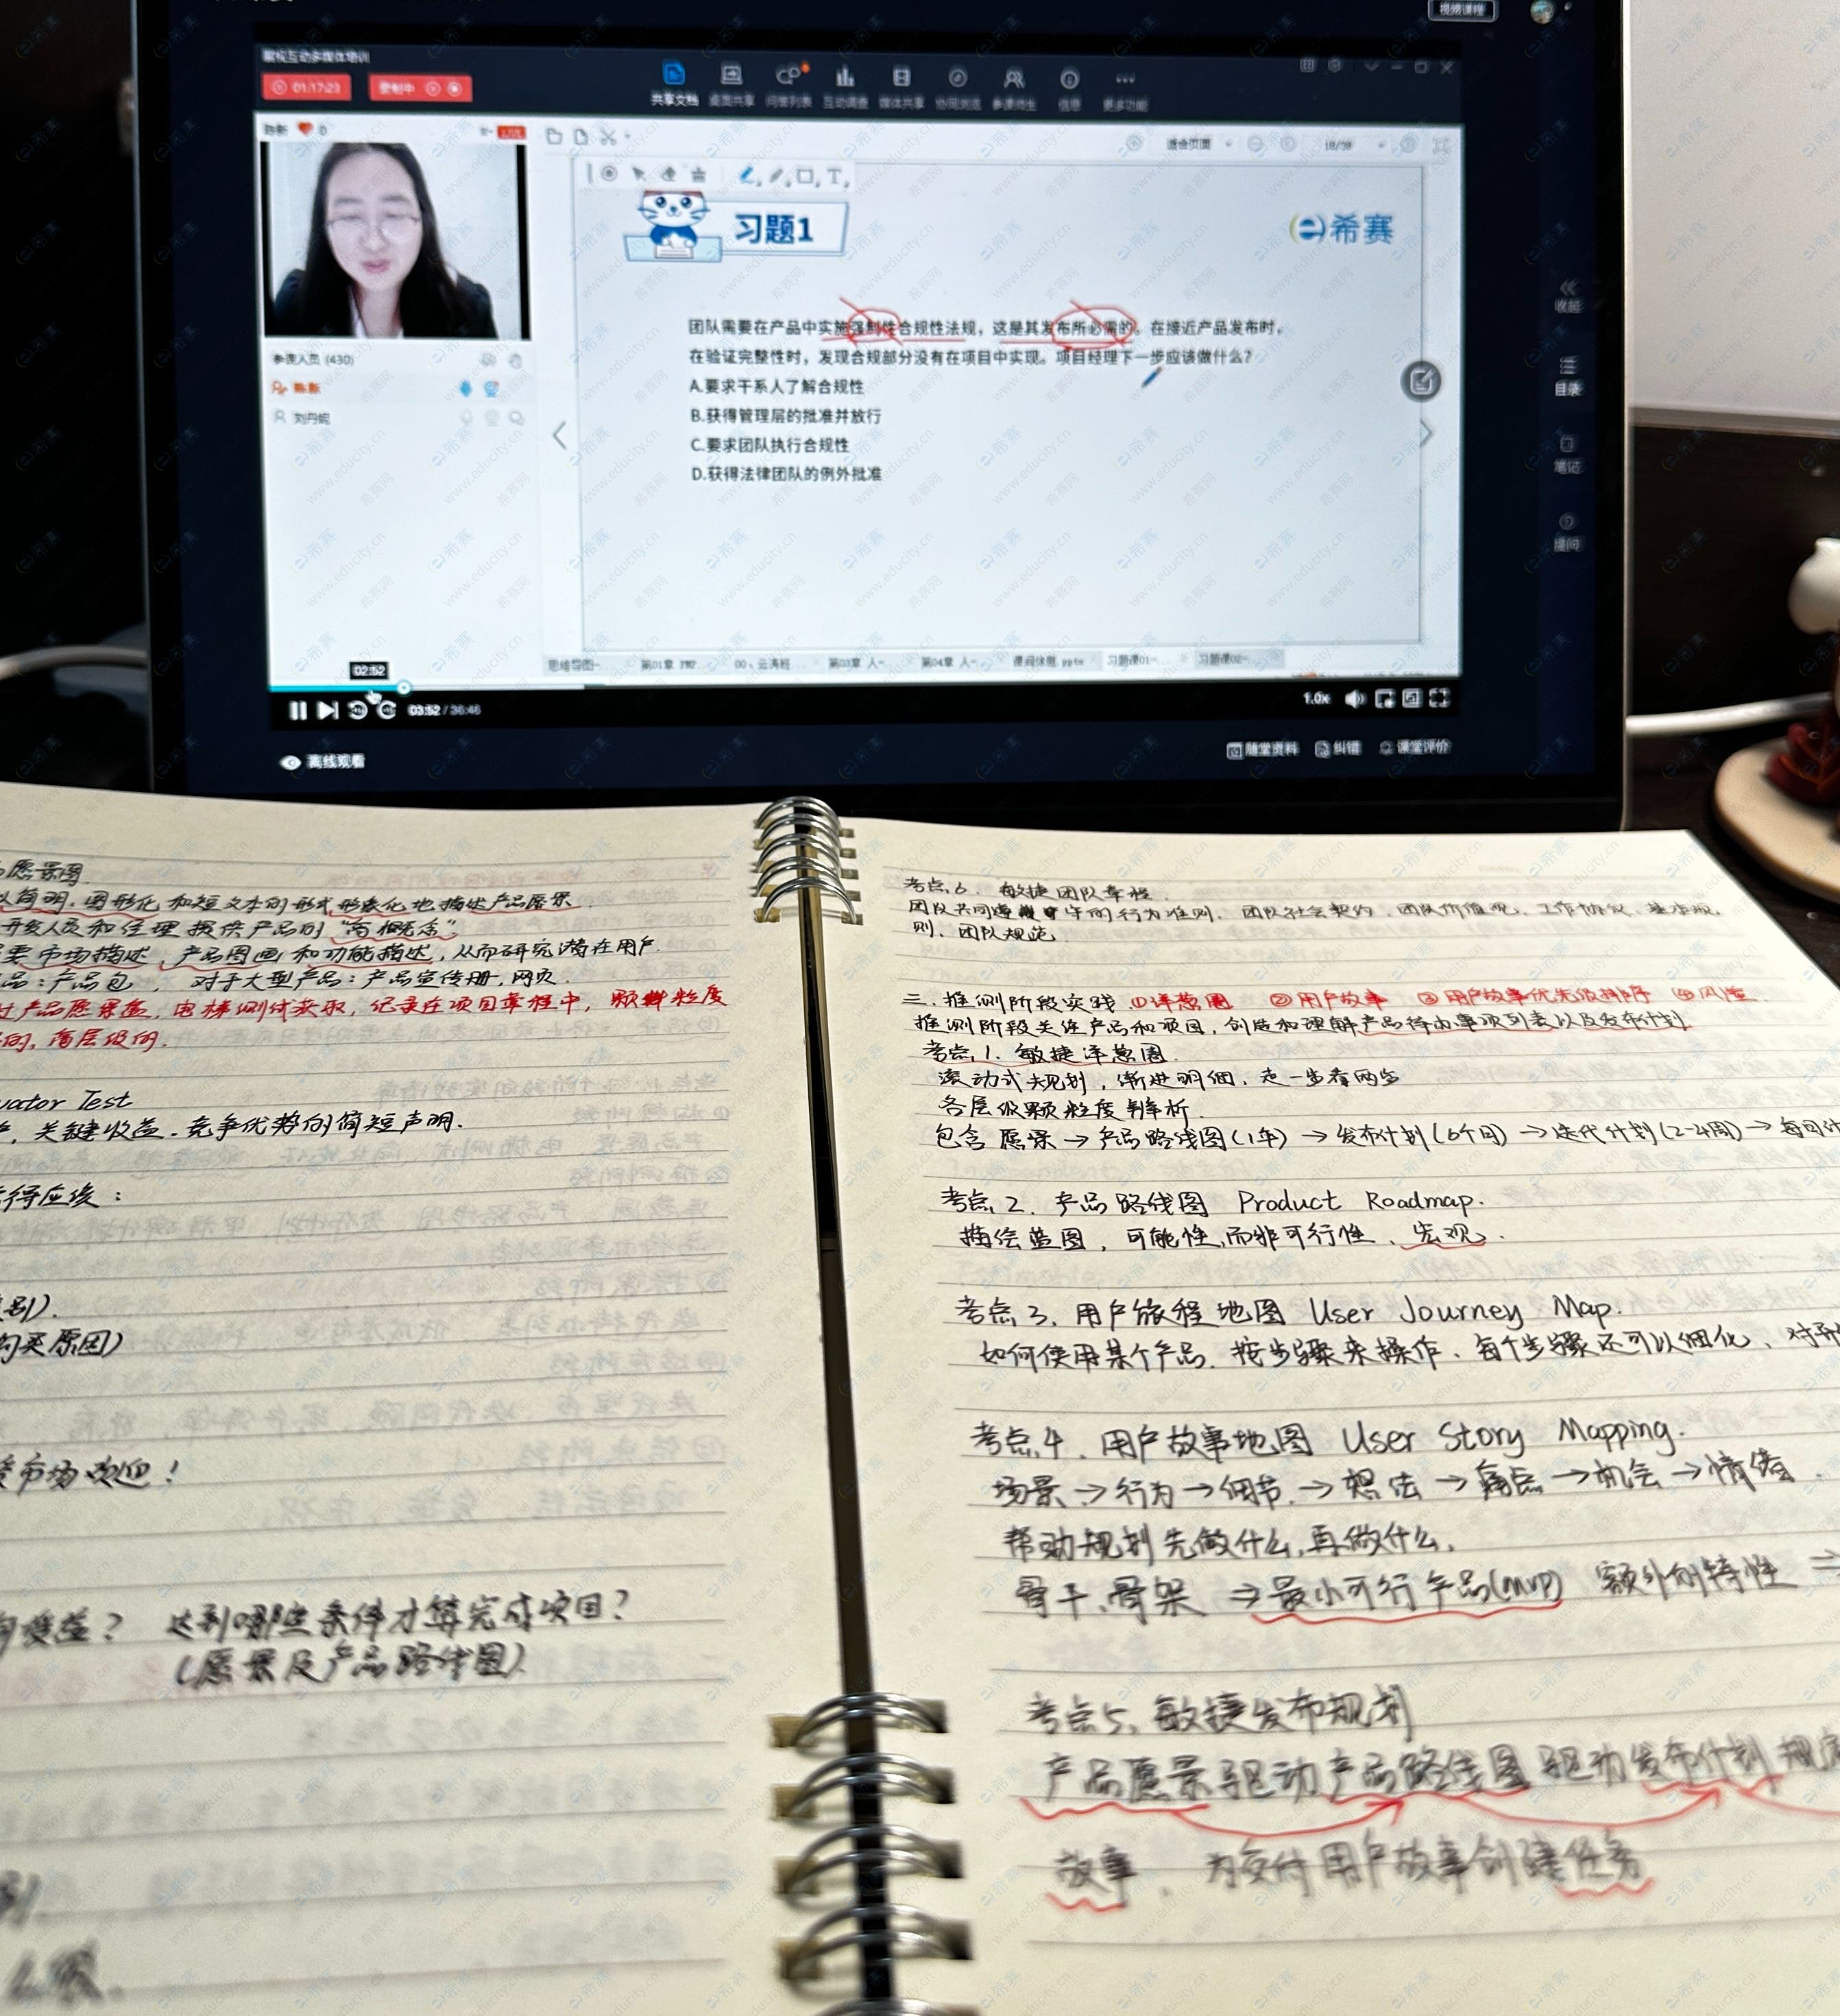 01:17:23
录制中
共享文档
桌面共享
问答列表
互动调查
媒体共享
协同浏览
参课师生
信息
更多功能
视频课程
陈新 0
适合页面
18/38
习题1
希赛
团队需要在产品中实施强制性合规性法规，这是其发布所必需的。在接近产品发布时，
在验证完整性时，发现合规部分没有在项目中实现。项目经理下一步应该做什么？
A.要求干系人了解合规性
B.获得管理层的批准并放行
C.要求团队执行合规性
D.获得法律团队的例外批准
参课人员 (430)
陈新
刘丹妮
收起
目录
笔记
提问
思维导图-
第01章 PMP
第03章 人-
第04章 人-
课间休息.pptx
习题课01-
习题课02-
02:52
03:52 / 36:46
1.0x
离线观看
随堂资料
纠错
课堂评价
愿景图
以简明、图形化和短文本的形式形象化地描述产品愿景
开发人员和经理提供产品的“高概念”
要市场描述，产品图画和功能描述，从而研究潜在用户
品：产品包， 对于大型产品：产品宣传册，网页
产品愿景盒，电梯测试获取，记录在项目章程中，颗粒度
的，高层级的．
vator Test
关键收益、竞争优势的简短声明．
得应该：
别)．
购买原因)
市场欢迎！
受益？ 达到哪些条件才算完成项目？
(愿景及产品路线图)
考点6． 敏捷团队章程
团队共同遵守的行为准则，团队社会契约，团队价值观、工作协议、基本规
则、团队规范
三．推测阶段实践 ①洋葱圈 ②用户故事 ③用户故事优先级排序 ④风险
推测阶段关注产品和项目，创造和理解产品待办事项列表以及发布计划
考点1．敏捷洋葱圈．
滚动式规划，渐进明细，走一步看两步
各层级颗粒度辨析．
包含 愿景→产品路线图(1年)→发布计划(6个月)→迭代计划(2-4周)→每日计
考点2．产品路线图 Product Roadmap．
描绘蓝图，可能性，而非可行性、宏观．
考点3．用户旅程地图 User Journey Map．
如何使用某个产品．按步骤来操作、每个步骤还可以细化、
考点4．用户故事地图 User Story Mapping．
场景→行为→细节→想法→痛点→机会→情绪
帮助规划先做什么，再做什么．
骨干、骨架 ⇒最小可行产品(MVP) 额外的特性⇒
考点5、敏捷发布规划
产品愿景驱动产品路线图驱动发布计划
故事，为交付用户故事创建任务